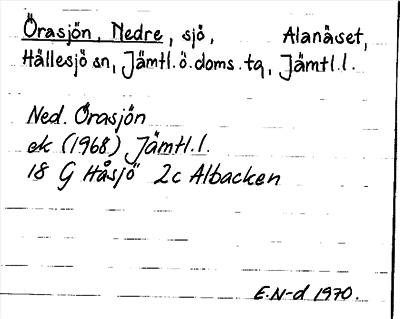 Örasjön, Nedre, sjö, Alanäset,
Hällesjö sn, Jämtl.ö.doms.tg, Jämtl.l.
Ned. Örasjön
ek (1968) Jämtl.l.
18 G Håsjö 2c Albacken
E.N-d 1970.